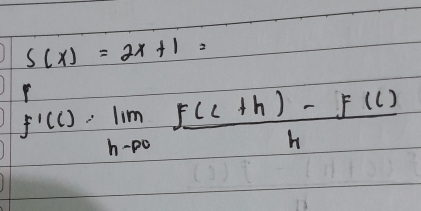 S(x) = 2x + 1 =
f'(c) = lim h→0 F(c + h) - F(c) / h